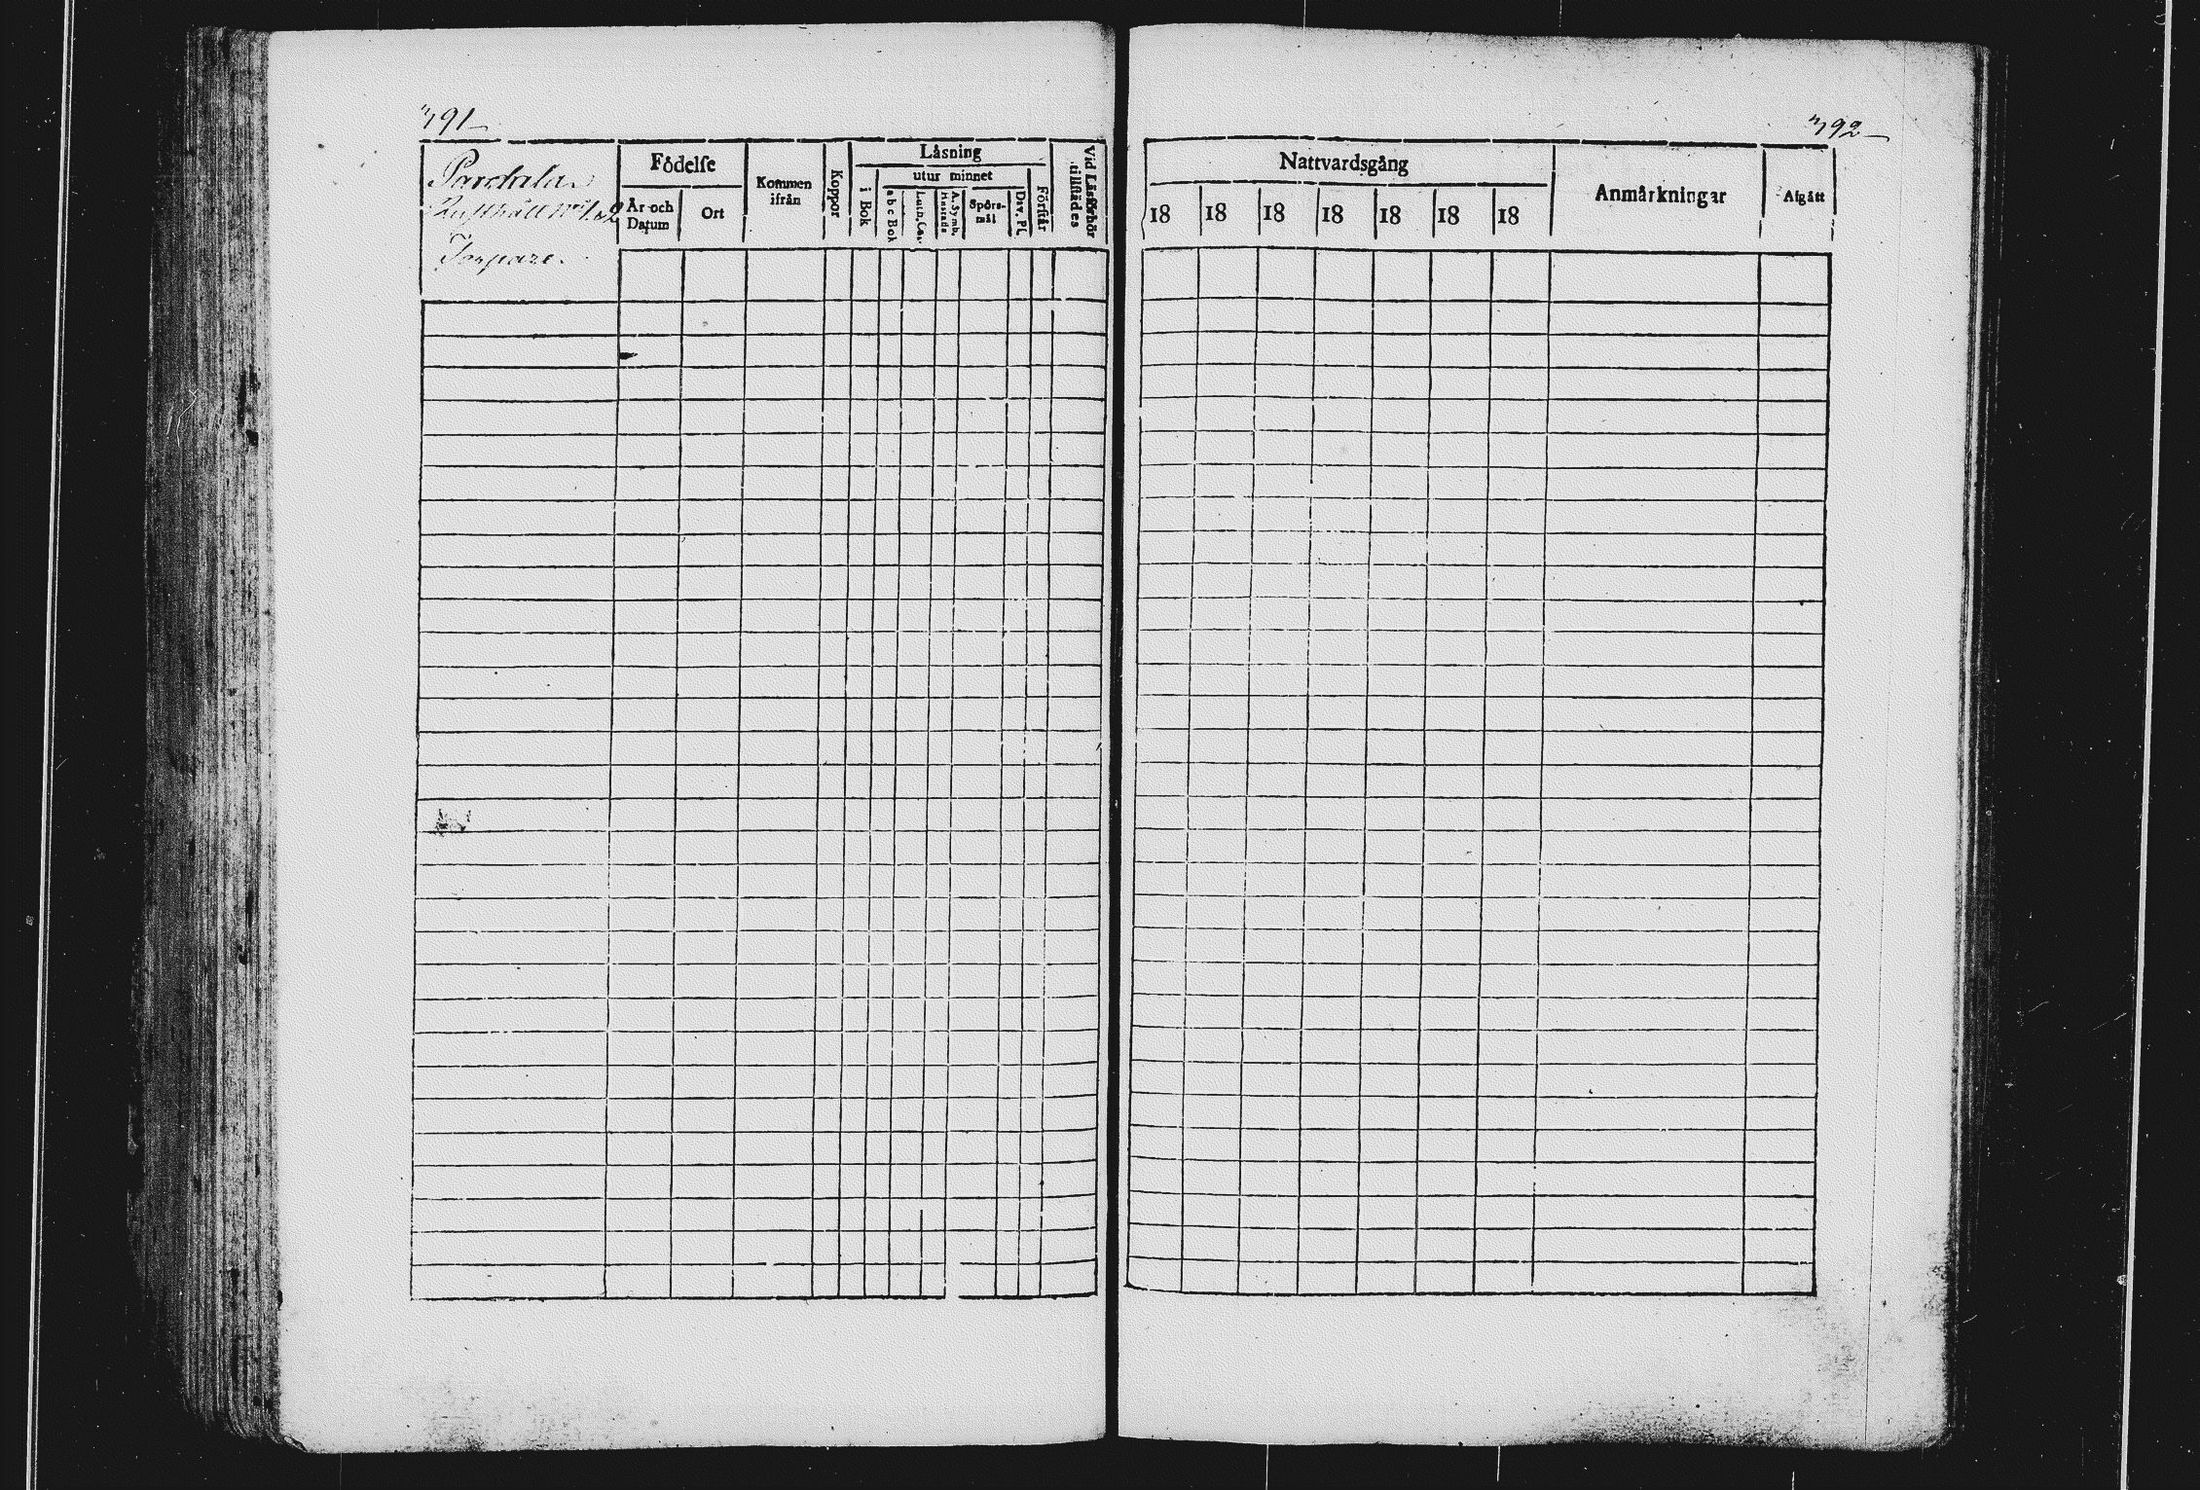 391
392
Torpare.
Födelse
År och
Datum
Ort
Kommen
ifrån
Koppor
Läsning
utur minnet
i Bok
a b c Bok
Luth. Cat.
A. Symb.
Hustafla
Spörs-
mål
Dav. Ps.
Förstår
Vid Läsförhör
tillstädes
Nattvardsgång
18 18 18 18 18 18 18
Anmärkningar
Afgått